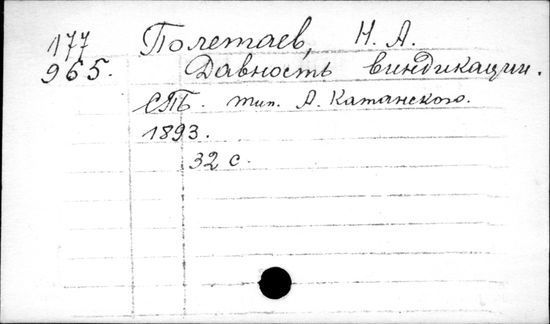 177 Полетаев, Н. А.
965. Давность виндикации.
СПБ. тип. А. Катанского.
1893.
32 с.